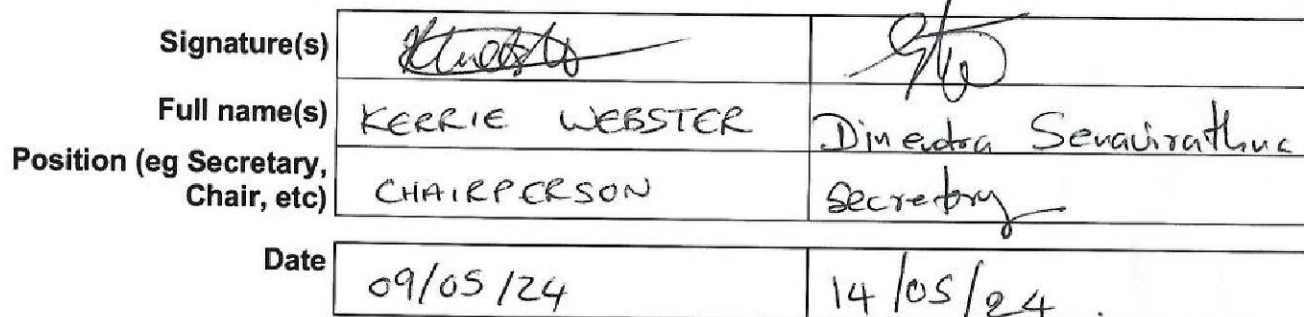 Signature(s)
Full name(s) KERRIE WEBSTER Dinendra Senavirathna
Position (eg Secretary,
Chair, etc) CHAIRPERSON Secretary
Date 09/05/24 14/05/24.